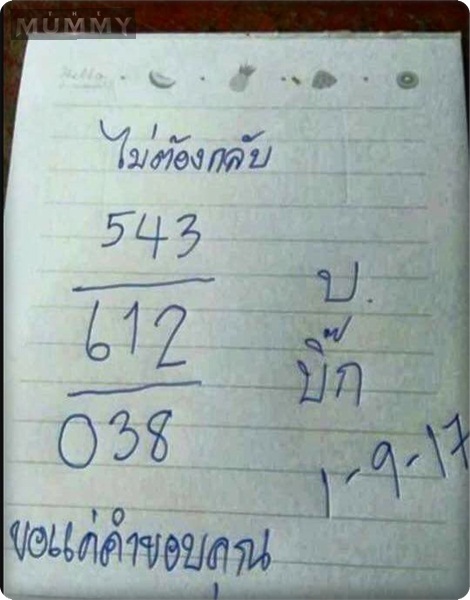 THE
MUMMY
Hello
ไม่ต้องกลับ
543
612
038
บ.
บิ๊ก
1-9-17
ขอแค่คำขอบคุณ